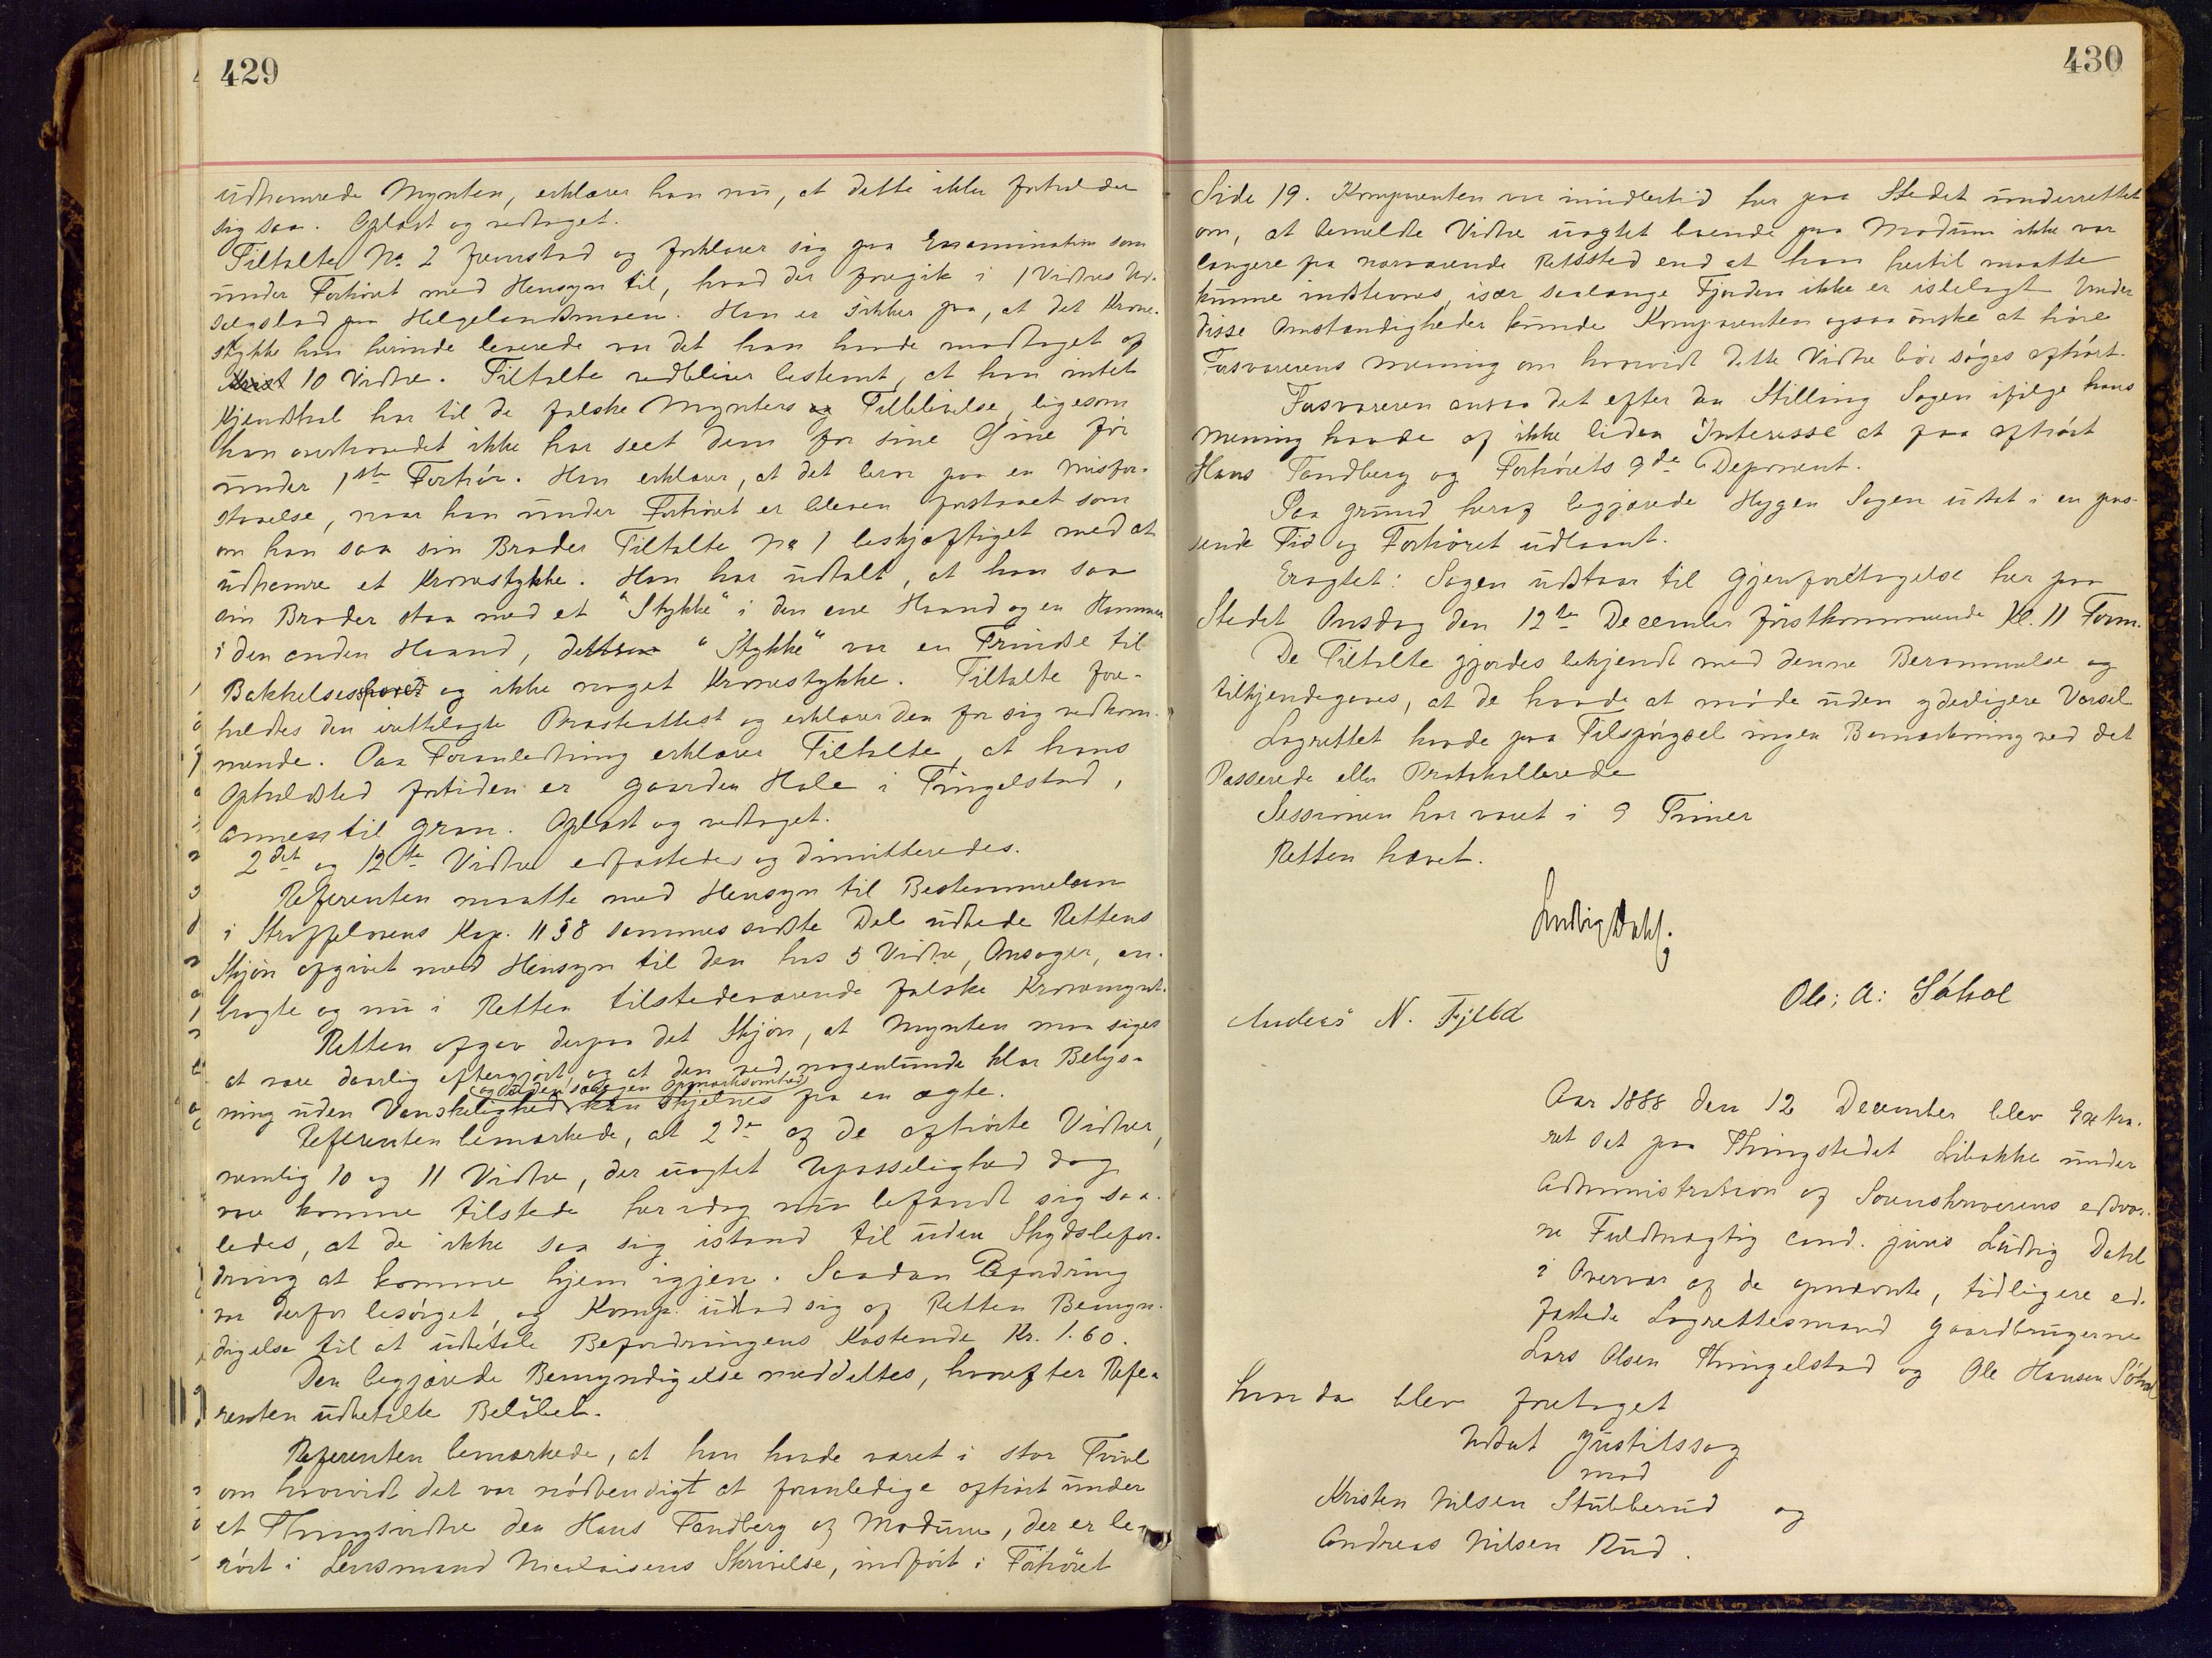 429
udhamrede Mynten, erklærer han nu, at dette ikke forholder
sig saa. Oplæst og vedtaget.
Tiltalte No. 2 fremstod og forklarer sig paa Examination som
under Forhøret med Hensyn til, hvad der foregik i 1 Vidnes Ud-
salgsbod paa Helgelandsmoen. Han er sikker paa, at det Krone-
stykke han herinde leverede var det han havde modtaget af
10 Vidne. Tiltalte vedbliver bestemt, at han intet
Kjendskab har til de falske Mynters Tilblivelse, ligesom
han overhovedet ikke har seet dem for sine Øine før
under 1ste Forhør. Han erklærer, at det beror paa en Misfor-
staaelse, naar han under Forhøret er bleven forstaaet som
om han saa sin Broder Tiltalte No 1 beskjæftiget med at
udhamre et Kronestykke. Han har udtalt, at han saa
sin Broder staa med et "Stykke" i den ene Haand og en Hammer
i den anden Haand, "Stykke" var en Trindse til
og ikke noget Kronestykke. Tiltalte fore-
holdtes den irettelagte Præsteattest og erklærer den for sig vedkom-
mende. Paa Foranledning erklærer Tiltalte, at hans
Opholdssted fortiden er Gaarden Hole i Tingelstad,
annex til Gran. Oplæst og vedtaget.
2det og 12te Vidne edfæstedes og dimitteredes.
Referenten maatte med Hensyn til Bestemmelsen
i Straffelovens Kap. 11 § 8 sammes sidste Del udbede Rettens
Skjøn afgivet med Hensyn til den hos 5 Vidne, Onsager, an-
bragte og nu i Retten tilstedeværende falske Kronemynt.
Retten afgav derpaa det Skjøn, at Mynten maa siges
at være daarlig eftergjort og at den ved nogenlunde klar Belys-
og uden særegen Opmærksomhed
ning uden Vanskelighed kan skjelnes fra en ægte.
Referenten bemærkede, at 2de af de afhørte Vidner,
nemlig 10 og 11 Vidne, der uagtet Upasselighed dog
var komne tilstede her idag nu befandt sig saa-
ledes, at de ikke saa sig istand til uden Skydsbefor-
dring at komme hjem igjen. Saadan Befordring
var derfor besørget, og Komp. udbad sig af Retten Bemyn-
digelse til at udbetale Befordringens Kostende Kr. 1.60.
Den begjærede Bemyndigelse meddeltes, hvorefter Refe-
renten udbetalte Beløbet.
Referenten bemærkede, at han havde været i stor Tvivl
om hvorvidt det var nødvendigt at foranledige afhørt under
et Thingsvidne den Hans Tandberg af Modum, der er be-
rørt i Lensmand Nicolaisens Skrivelse, indført i Forhøret
430
Side 19. Komparenten var imidlertid her paa Stedet underrettet
om, at bemeldte Vidne uagtet boende paa Modum ikke var
længere fra nærværende Rettssted end at han hertil maatte
kunne indstevnes, især saalænge Fjorden ikke er islelagt. Under
disse Omstændigheder kunde Komparenten ogsaa ønske at høre
Forsvarerens Mening om hvorvidt dette Vidne bør søges afhørt.
Forsvareren ansaa det efter den Stilling Sagen ifølge hans
Mening havde af ikke liden Interesse at faa afhørt
Hans Tandberg og Forhørets 9de Deponent.
Paa Grund heraf begjærede Hygen Sagen udsat i en pas-
sende Tid og Forhøret udlaant.
Eragtet: Sagen udstaar til Gjenforetagelse her paa
Stedet Onsdag den 12te December førstkommende Kl. 11 Form.
De Tiltalte gjordes bekjendt med denne Berammelse og
tilkjendegaves, at de havde at møde uden yderligere Varsel
Lagrettet havde paa Tilspørgsel ingen Bemærkning ved det
Passerede eller Protokollerede
Sessionen har varet i 9 Timer
Retten hævet.
Ludvig Dahl.
Anders N. Fjeld
Ole: A: Søhol
Aar 1888 den 12 December blev Extra-
ret sat paa Thingstedet Libakke under
Administration af Sorenskriverens edsvor-
ne Fuldmægtig cand. juris Ludvig Dahl
i Overvær af de opnævnte, tidligere ed-
fæstede Lagrettesmænd Gaardbrugerne
Lars Olsen Thingelstad og Ole Hansen Søhol
hvor da blev foretaget
Udsat Justitssag
mod
Kristen Nilsen Stubberud og
Andreas Nilsen Rud.